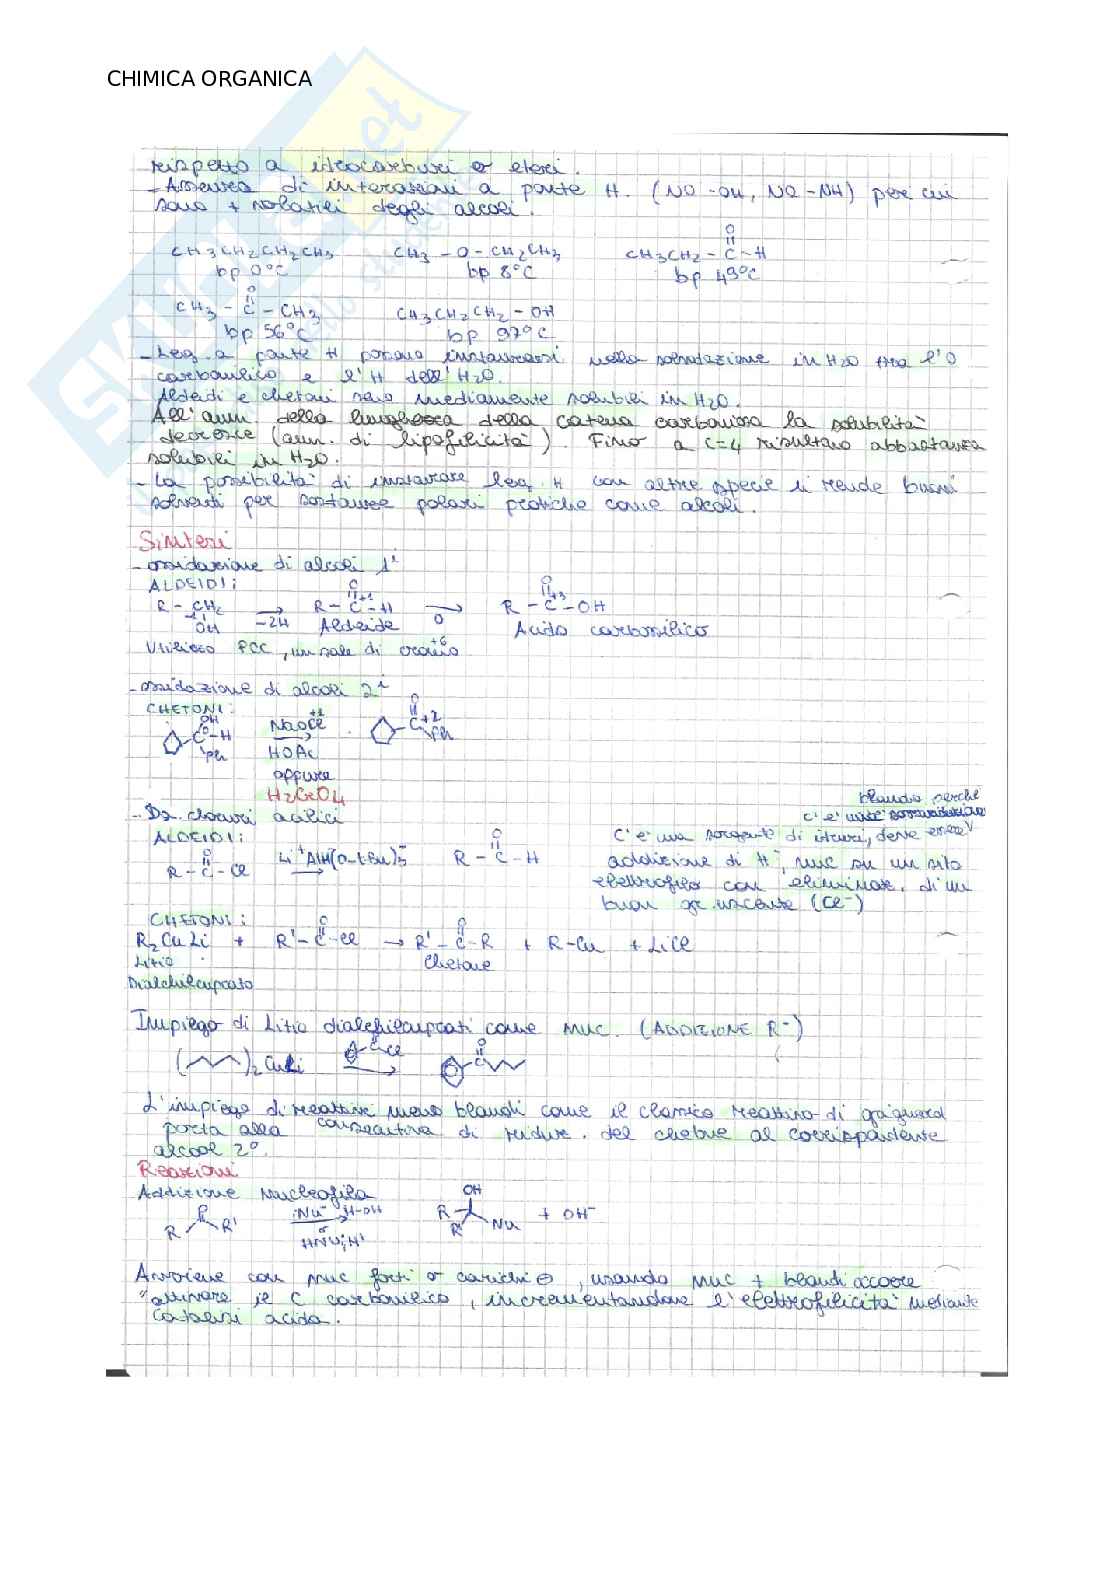 CHIMICA ORGANICA
rispetto a idrocarburi o eteri.
- Assenza di interazioni a ponte H. (NO -OH, NO -NH) per cui
sono + volatili degli alcoli.
CH3CH2CH2CH3 CH3 - O - CH2CH3 CH3CH2 - C - H
O
bp 0°C bp 8°C bp 49°C
O
CH3 - C - CH3 CH3CH2CH2 - OH
bp 56°C bp 97°C
- Leg. a ponte H possono instaurarsi nella solvatazione in H2O tra l'O
carbonilico e l'H dell'H2O.
Aldeidi e chetoni sono mediamente solubili in H2O.
All'aum. della lunghezza della catena carboniosa la solubilità
decresce (aum. di lipofilicità). Fino a C=4 risultano abbastanza
solubili in H2O.
- La possibilità di instaurare leg. H con altre specie li rende buoni
solventi per sostanze polari protiche come alcoli.
Sintesi
- ossidazione di alcoli 1i
ALDEIDI:
O O
R - CH2 R - C - H R - C - OH
+1 +3
OH -2H Aldeide O Acido carbossilico
Utilizzo PCC, un sale di cromo +6
- ossidazione di alcoli 2i
CHETONI:
OH O
C - H NaOCl +1 C +2
Ph HOAc Ph
oppure
H2CrO4
- Da cloruri acilici
blando perché
c'è
ALDEIDI:
O O
R - C - Cl Li+AlH(O-t-Bu)3- R - C - H
C'è una sorgente di idruri, deve esserV
addizione di H-, nuc su un sito
elettrofilo con eliminaz. di un
buon gr. uscente (Cl-)
CHETONI:
O O
R2CuLi + R' - C - Cl → R' - C - R + R-Cu + LiCl
Litio Chetone
Dialchilcuprato
Impiego di Litio dialchilcuprati come nuc. (ADDIZIONE R-)
( )2 CuLi Cl O
L'impiego di reattivi meno blandi come il classico reattivo di grignard
porta alla consecutiva di riduz. del chetone al corrispondente
alcool 2°.
Reazioni
Addizione Nucleofila
O OH
R R' :Nu- H-OH R Nu + OH-
R'
Avviene con nuc forti o carichi ⊖, usando nuc + blandi occorre
"attivare il C carbonilico, incrementandone l'elettrofilicità mediante
catalisi acida.